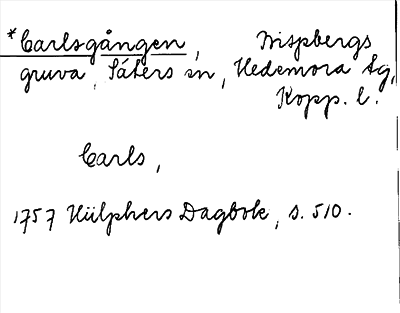 *Carlsgången, Bispbergs
gruva, Säters sn, Hedemora tg,
Kopp. l.
Carls,
1757 Hülphers Dagbok, s. 510.